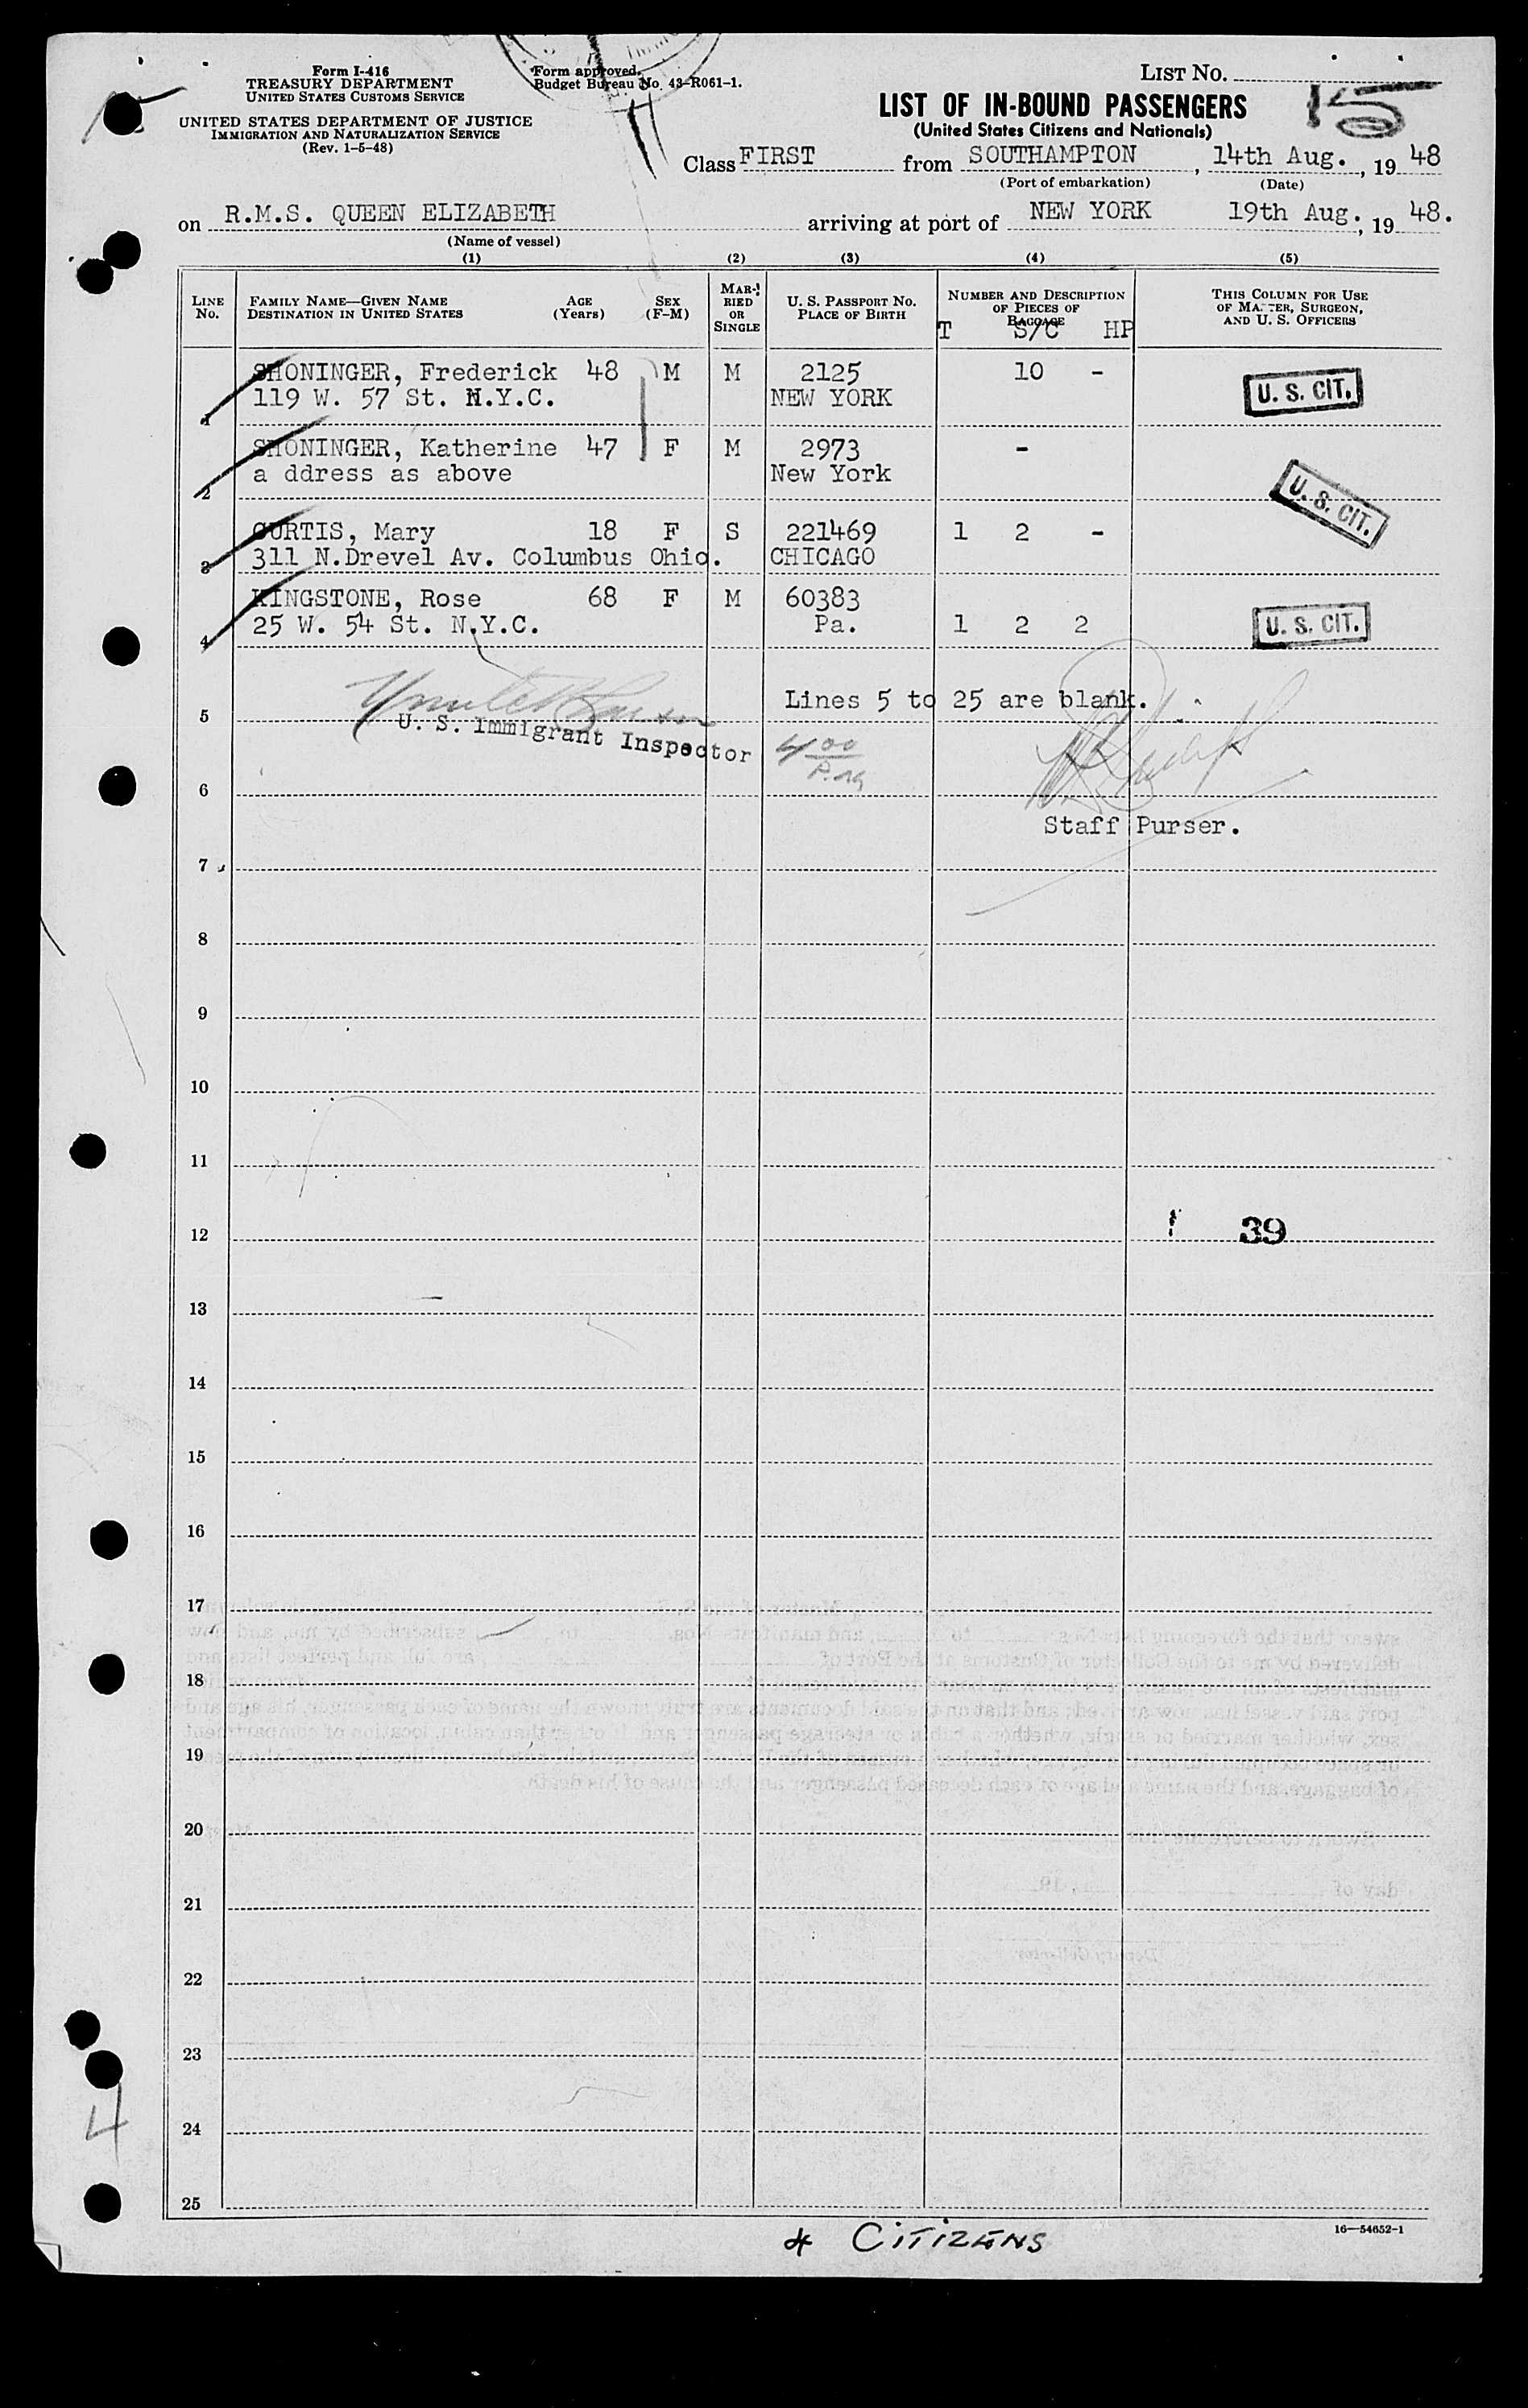 Form I-416
TREASURY DEPARTMENT
UNITED STATES CUSTOMS SERVICE
UNITED STATES DEPARTMENT OF JUSTICE
IMMIGRATION AND NATURALIZATION SERVICE
(Rev. 1-5-48)
Form approved.
Budget Bureau No. 43-R061-1.
LIST No.
15
LIST OF IN-BOUND PASSENGERS
(United States Citizens and Nationals)
Class FIRST from SOUTHAMPTON, 14th Aug., 19 48
(Port of embarkation) (Date)
on R.M.S. QUEEN ELIZABETH arriving at port of NEW YORK 19th Aug., 19 48.
(Name of vessel)
(1) (2) (3) (4) (5)
LINE No. FAMILY NAME—GIVEN NAME DESTINATION IN UNITED STATES AGE (Years) SEX (F-M) MARRIED OR SINGLE U. S. PASSPORT NO. PLACE OF BIRTH NUMBER AND DESCRIPTION OF PIECES OF BAGGAGE THIS COLUMN FOR USE OF MASTER, SURGEON, AND U. S. OFFICERS
T S/C HP
SHONINGER, Frederick 48 M M 2125 10 -
1 119 W. 57 St. N.Y.C. NEW YORK U. S. CIT.
SHONINGER, Katherine 47 F M 2973 -
2 a ddress as above New York U. S. CIT.
CURTIS, Mary 18 F S 221469 1 2 -
3 311 N.Drevel Av. Columbus Ohio. CHICAGO
KINGSTONE, Rose 68 F M 60383
4 25 W. 54 St. N.Y.C. Pa. 1 2 2 U. S. CIT.
5 Lines 5 to 25 are blank.
U. S. Immigrant Inspector
4 00
6
Staff Purser.
7
8
9
10
11
12 39
13
14
15
16
17
18
19
20
21
22
23
24
4
25
4 CITIZENS
16—54652-1